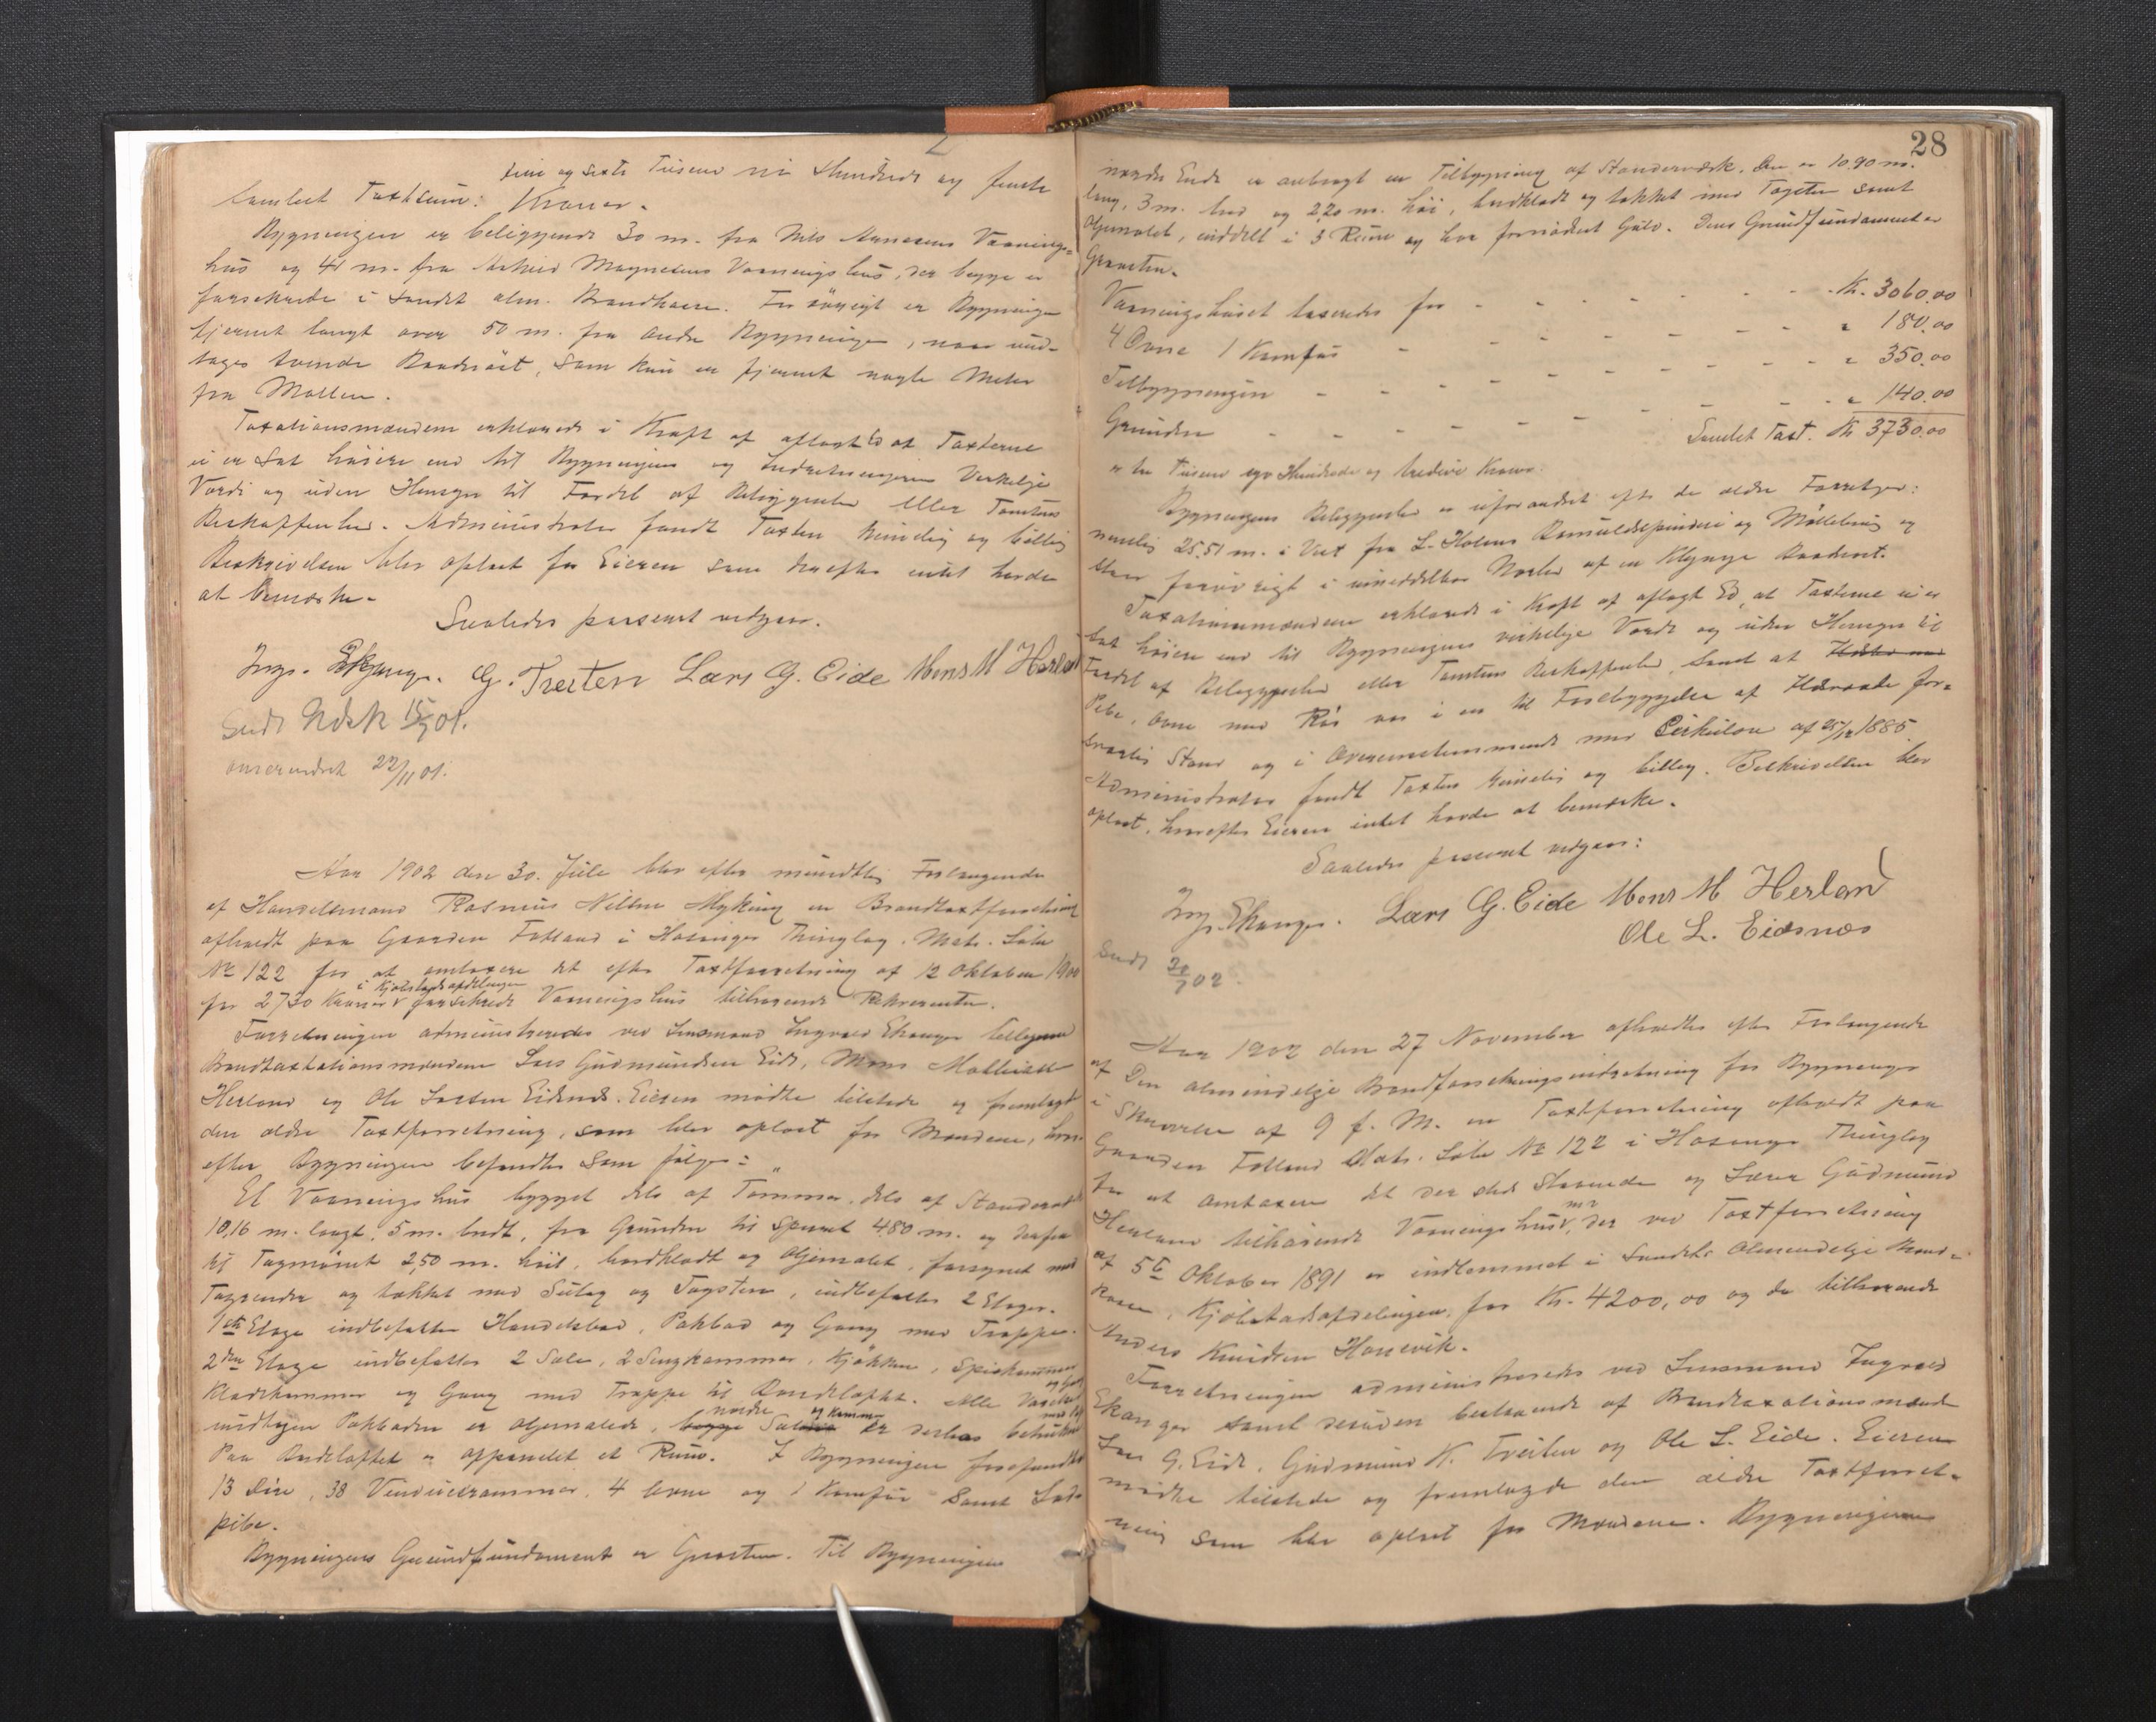 fire og sexti Tusen ni Hundrede og femti
Samlet Taxtsum: Kroner.
Bygningen er beliggende 30 m. fra Nils Monsens Vaanings-
hus og 41 m. fra Magnesens Vaaningshus, der begge er
forsikrede i Landets alm. Brandkasse. For øvrigt er Bygningen
fjernet langt over 50 m. fra andre Bygninger, naar und-
tages tvende Baadnøst, som kun er fjernet nogle Meter
fra Møllen.
Taxationsmændene erklærede i Kraft af aflagt Ed at Taxterne
ei er sat høiere end til Bygningens og Indretningens Verkelige
Værdi og uden Hensyn til Fordel af Beliggenhed eller Tomtens
Beskaffenhed. Administrator fandt Taxten rimelig og billig
Beskrivelsen blev oplæst for Eieren som derefter intet havde
at bemærke.
Saaledes passeret vedgaaes.
Ingv. Ekanger. G. Treiten Lars G. Eide Mons M Herland
Sendt Ndsk 15/7 01.
omsendt 22/11 01.
Aar 1902 den 30. Juli blev efter mundtlig Forlangende
af Handelsmand Rasmus Nilsen Myking en Brandtaxtforretning
afholdt paa Gaarden Fotland i Hosanger Thinglag. Matr. Løbe
No 122 for at omtaxere det efter Taxtforretning af 12 Oktober 1900
i Kjøbstadsafdelingen
for 2730 Kroner v forsikrede Vaaningshus tilhørende Rekvirenten.
Forretningen administreredes ved Lensmand Ingvald Ekanger tilligemed
Brandtaxtationsmændene Lars Gudmundsen Eide, Mons Mathias
Herland og Ole Larsen Eidsnes. Eieren mødte tilstede og fremlagde
den ældre Taxtforretning, som blev oplæst for Mændene, hvor-
efter Bygningen befandtes som følger:
Et Vaaningshus bygget dels af Tømmer, dels af Standerverk
10,16 m. langt, 5 m. bredt, fra Grunden til Sperret 4,80 m. og derfra
til Tagmønet 2,50 m. høit, bordklædt og oljemalet, forsynet med
Tagrender og tækket med Sutag og Tagsten, indbefatter 2 Etager.
1ste Etage indbefatter Handelsbod, Pakbod og Gang med Trappe.
2den Etage indbefatter 2 Sale, 2 Sengkammer, Kjøkken, Spiskammer
Klædekammer og Gang med Trappe til Rundloftet. Alle Værelser
nordre og Kammer
undtagen Pakboden er oljemalede, begge Salene er desuden betrukne
Paa Rundloftet er oppanelet et Rum. I Bygningen forefandtes
13 Døre, 38 Vinduesrammer, 4 Ovne og 1 Komfur samt
pibe.
Bygningens Grundfundament er Graasten. Til Bygningens
28
nordre Ende er anbragt en Tilbygning af Standerværk. Den er 10,90 m.
lang, 3 m. bred og 2,20 m. høi, bordklædt og tækket med Tagsten samt
Oljemalet, inddelt i 3 Rum og har fornødent Gulv. Dens Grundfundament er
Graasten.
Vaaningshuset taxeredes for - - - - - Kr. 3060.00
4 Ovne 1 Komfur - - - - - " 180.00
Tilbygningen - - - - - " 350.00
Grunden - - - - - " 140.00
Samlet Taxt. Kr 3730.00
er tre Tusen syv Hundrede og tredive Kroner.
Bygningens Beliggenhed er uforandret efter de ældre Forretn:
nemlig 25,51 m. i Vest fra L. Holens Bomuldsspinderi og Møllebrug og
staar forøvrigt i umiddelbar Nærhed af en Klynge Baadnøst.
Taxationsmændene erklærede i Kraft af aflagt Ed, at Taxterne ei er
sat høiere end til Bygningens virkelige Værdi og uden Hensyn til
Fordel af Beliggenhed eller Tomtens Beskaffenhed, samt at
Pibe, Ovne med Rør var i en til Forebyggelse af Ildsvaade for-
svarlig Stand og i Overensstemmende med Cirkulære af 25/12 1885.
Administrator fandt Taxten rimelig og billig. Beskrivelsen blev
oplæst, hvorefter Eieren intet havde at bemærke.
Saaledes passeret vedgaaes:
Ingv. Ekanger. Lars G. Eide Mons M Herland
Ole L. Eidsnæs
Sendt 30/7 02.
Aar 1902 den 27 November afholdtes efter Forlangende
af Den almindelige Brandforsikringsindretning for Bygninger
i Skrivelse af 9 f. M. en Taxtforretning afholdt paa
Gaarden Fotland Matr. Løbe No 122 i Hosanger Thinglag
for at omtaxere det der sted staaende og Lærer Gudmund
m v
Herland tilhørende Vaaningshus, der ved Taxtforretning
af 5te Oktober 1891 er indlemmet i Landets Almindelige Brand-
kasse, Kjøbstadsafdelingen, for Kr. 4200,00 og da tilhørende
Anders Knudsen Hosevik.
Forretningen administreredes ved Lensmand Ingvald
Ekanger samt desuden bestaaende af Brandtaxationsmænd
Lars G. Eide, Gudmund K. Treiten og Ole L. Eide. Eieren
mødte tilstede og fremlagde den ældre Taxtforret-
ning som blev oplæst for Mændene. Bygningerne